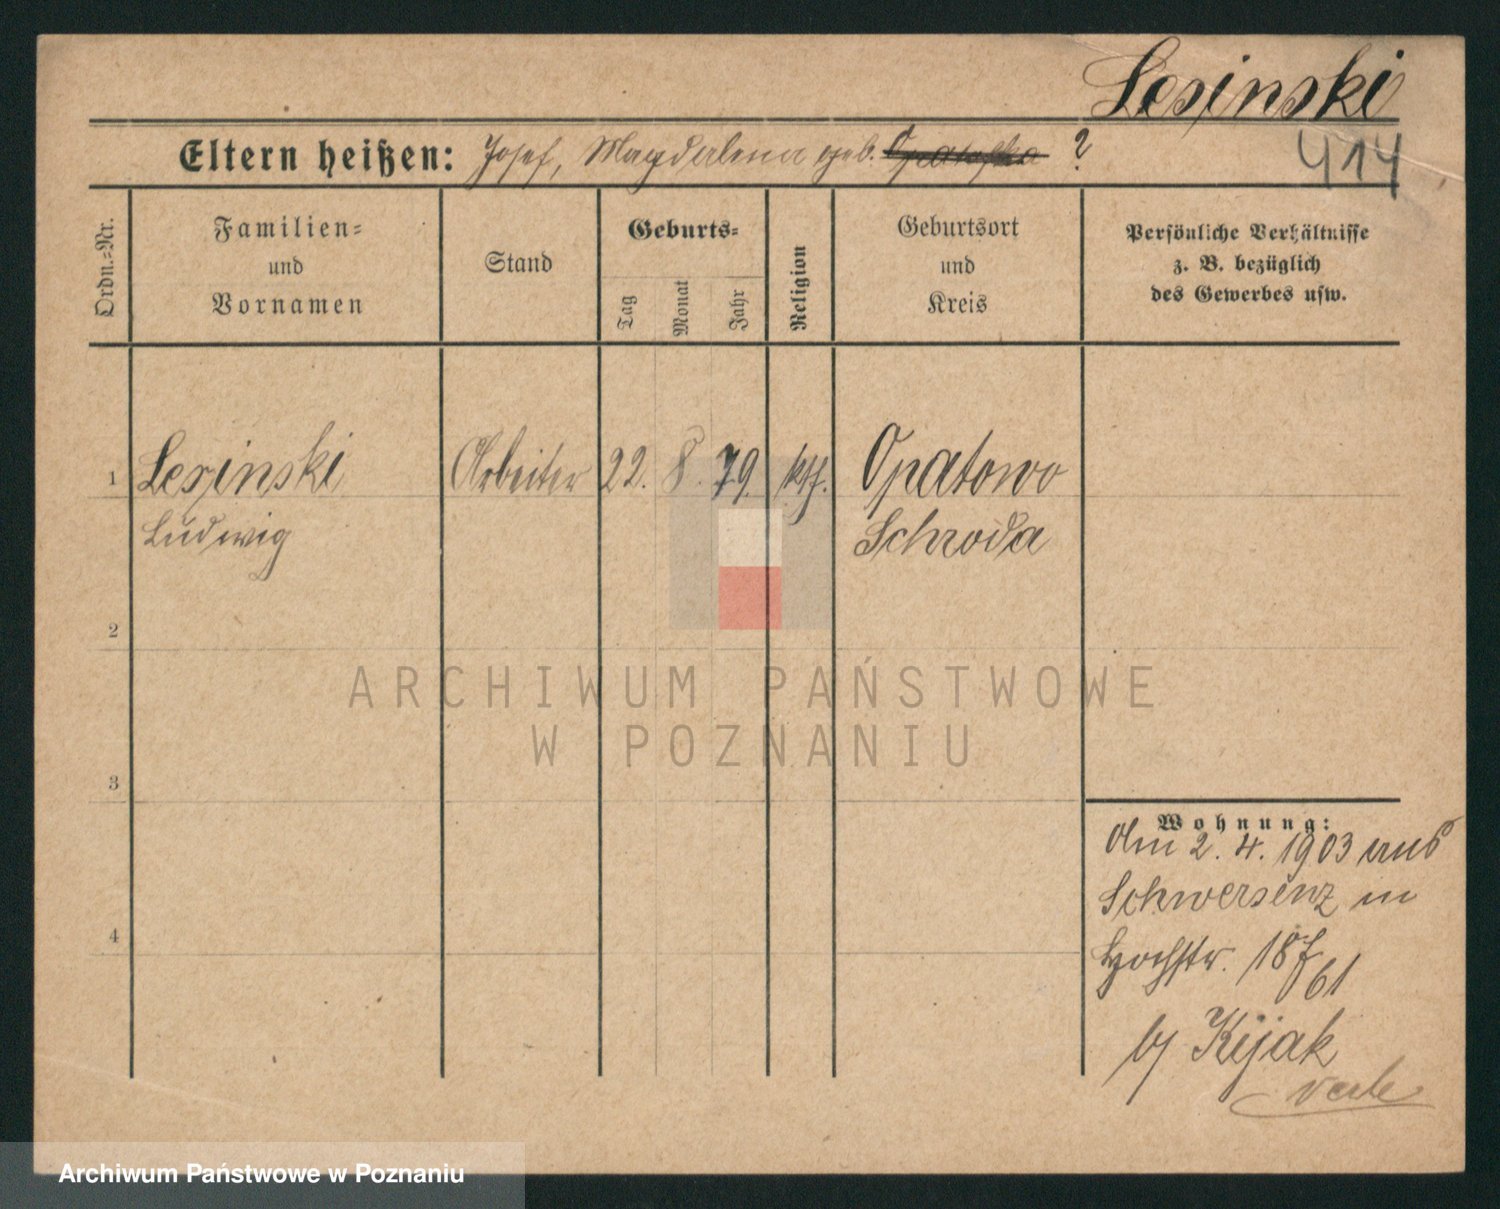 Lesinski
Eltern heißen: Josef, Magdalena geb. Opatofka ?
414
Ordn.=Nr.
Familien=
und
Vornamen
Stand
Geburts=
Tag
Monat
Jahr
Religion
Geburtsort
und
Kreis
Persönliche Verhältnisse
z. B. bezüglich
des Gewerbes usw.
1 Lesinski Arbeiter 22. 8. 79. kth. Opatowo
Ludwig Schroda
2
ARCHIWUM PAŃSTWOWE
W POZNANIU
3
Wohnung:
Am 2. 4. 1903 aus
Schwersenz in
4
Hochstr. 187/61
b/ Kijak
Archiwum Państwowe w Poznaniu